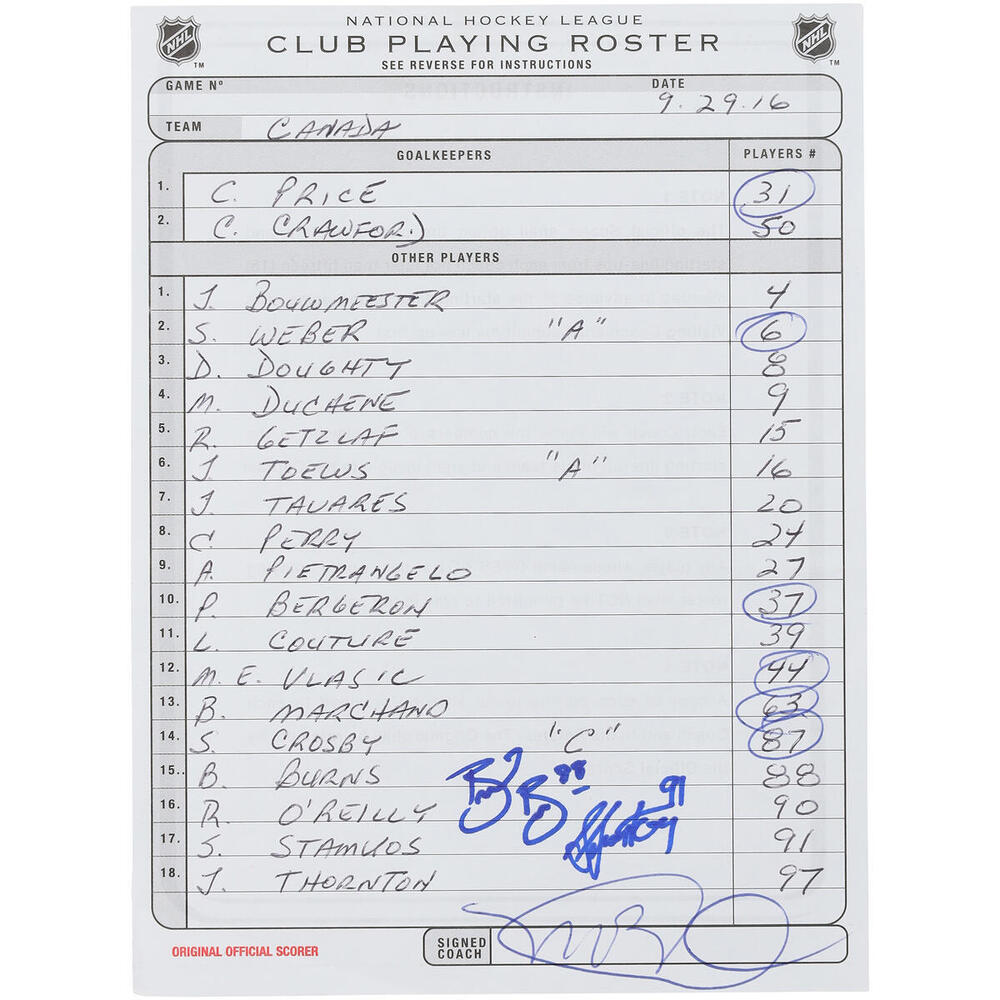 NATIONAL HOCKEY LEAGUE
NHL CLUB PLAYING ROSTER NHL
TM SEE REVERSE FOR INSTRUCTIONS TM
GAME Nº DATE 9.29.16
TEAM CANADA
GOALKEEPERS PLAYERS #
1. C. PRICE 31
2. C. CRAWFORD 50
OTHER PLAYERS
1. J. BOUWMEESTER 4
2. S. WEBER "A" 6
3. D. DOUGHTY 8
4. M. DUCHENE 9
5. R. GETZLAF 15
6. J TOEWS "A" 16
7. J. TAVARES 20
8. C. PERRY 24
9. A. PIETRANGELO 27
10. P. BERGERON 37
11. L. COUTURE 39
12. M.E. VLASIC 44
13. B. MARCHAND 63
14. S. CROSBY "C" 87
15. B. BURNS 88 88
16. R. O'REILLY 91 90
17. S. STAMKOS 91
18. J. THORNTON 97
ORIGINAL OFFICIAL SCORER
SIGNED
COACH